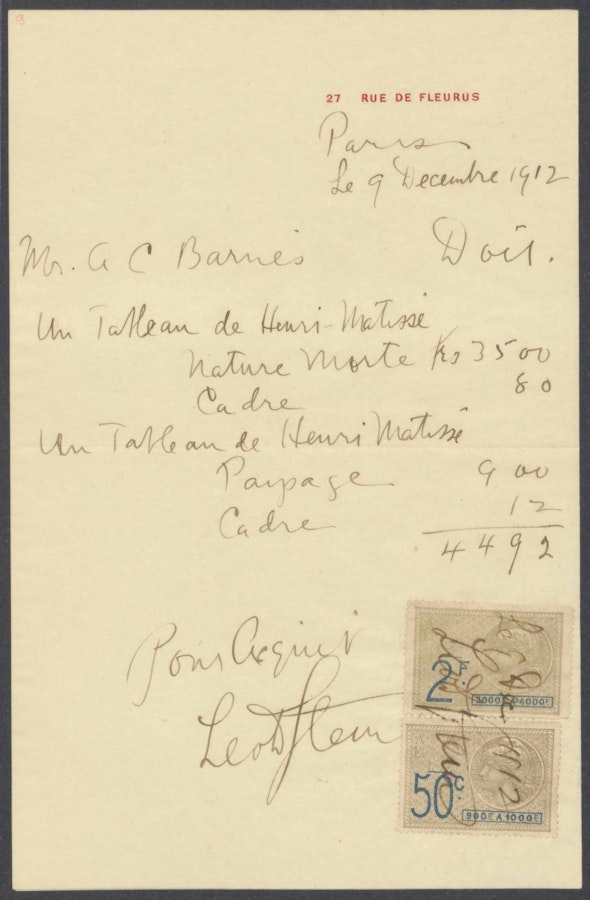 27 RUE DE FLEURUS
Paris
Le 9 Decembre 1912
Mr. A C Barnes Doit.
Un Tableau de Henri-Matisse
Nature Morte Frs 3500
Cadre 80
Un Tableau de Henri Matisse
Paysage 900
Cadre 12
4492
Pour Acquit
Leo D Stein
2F.
3000F A 4000F
50c.
900F A 1000F